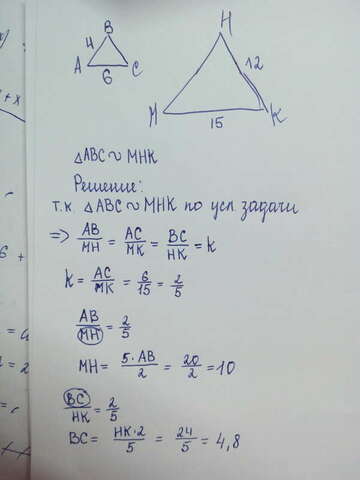 B
4
A 6 C
H
12
M 15 K
△ABC ~ MHK
Решение:
т.к. △ABC ~ MHK по усл. задачи
=> AB/MH = AC/MK = BC/HK = k
k = AC/MK = 6/15 = 2/5
AB/MH = 2/5
MH = 5·AB/2 = 20/2 = 10
BC/HK = 2/5
BC = HK·2/5 = 24/5 = 4,8